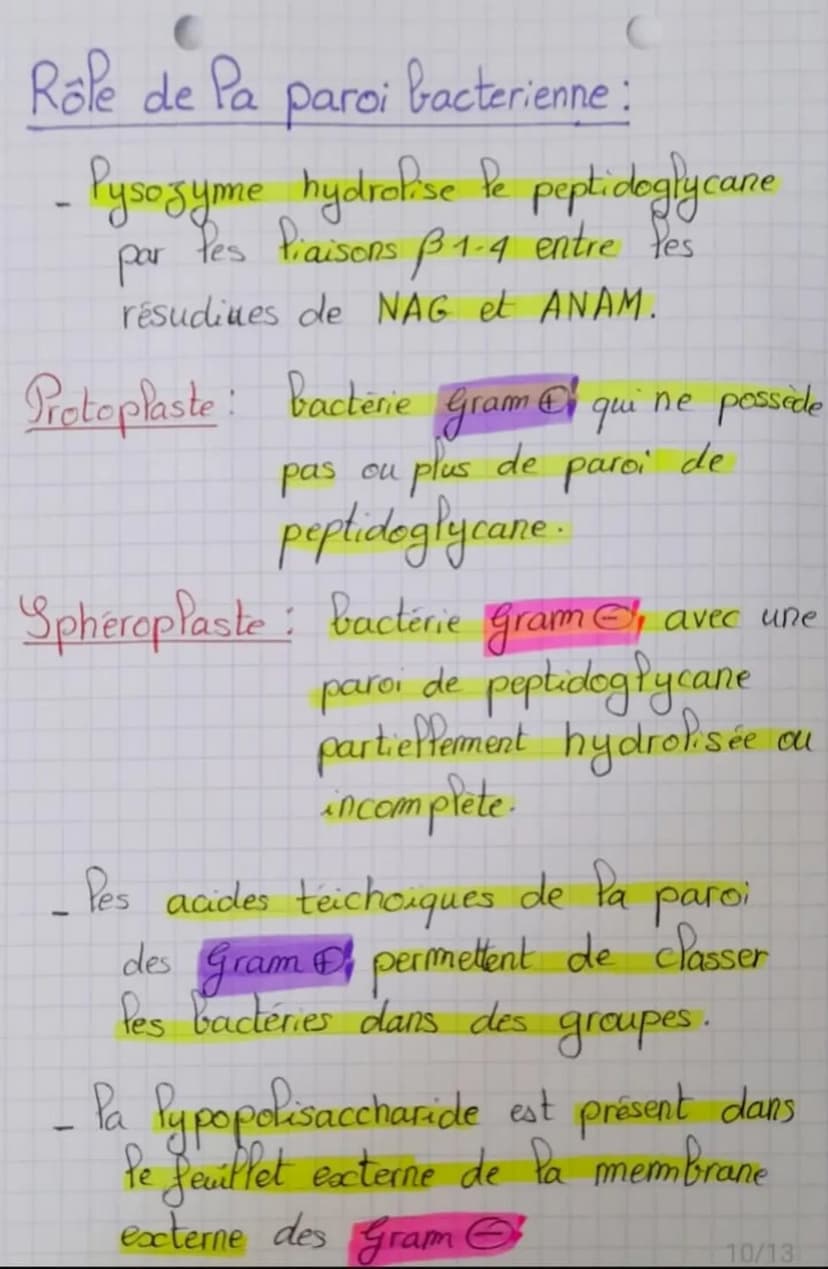 Rôle de la paroi bacterienne :
- lysozyme hydrolise le peptidoglycane
par les liaisons β 1-4 entre les
résudiues de NAG et ANAM.
Protoplaste : bactérie gram ⊕ qui ne possède
pas ou plus de paroi de
peptidoglycane.
Sphéroplaste : bactérie gram ⊖ avec une
paroi de peptidoglycane
partiellement hydrolisée ou
incomplète.
- les acides téichoiques de la paroi
des gram ⊕ permettent de classer
les bactéries dans des groupes.
- la lypopolisaccharide est présent dans
le feuillet externe de la membrane
externe des gram ⊖
10/13